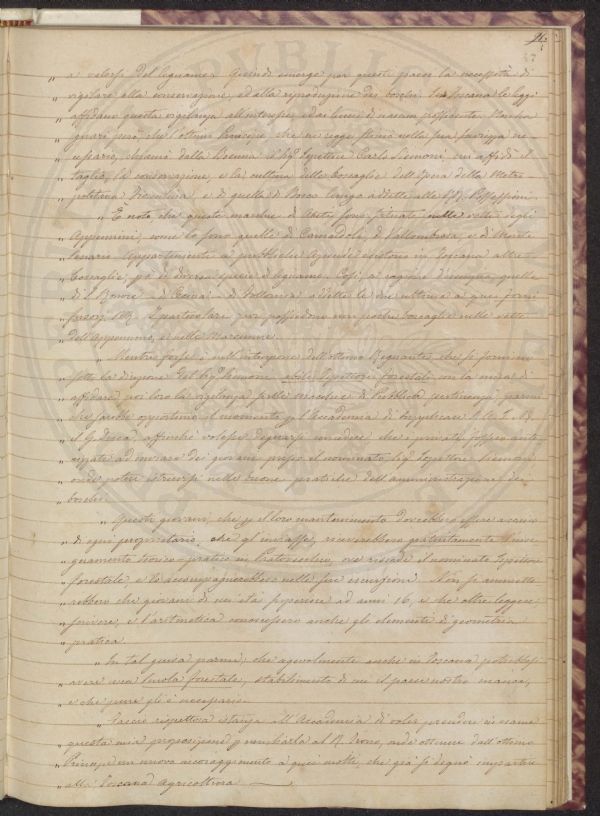 26.
„ a valersi del legname. Quindi emerge per questi paesi la necessità di
„ vigilare alla conservazione, ed alla riproduzione dei boschi. In Toscana le leggi
„ affidano questa vigilanza
„ però, che l'ottimo Principe, che ne regge
„ chiamò dalla Boemia il Sig. Ispettore Carlo Siemoni, cui affidò il
„ taglio, la conservazione, e la cultura delle boscaglie dell'Opera della Metro„
„ politana Fiorentina, e di quelle di Bosco lungo addette alle Possessioni.
„ È noto che queste macchie di Abeti sono situate nelle vette degli
„ Appennini, come lo sono quelle di Camaldoli, di Vallombrosa, e di Monte
„ Senario. Appartenenti a pubbliche Aziende esistono in Toscana altre
„ boscaglie, di diversa specie di legname. Così, a cagione d'esempio, quelle
„ di Cecina di Follonica addette le due ultime a quei forni
„ I particolari poi possiedono non poche boscaglie nelle vette
„ dell'Appennino, e nelle Maremme.
„ Mentre forse è nell'intenzione dell'ottimo Regnante, che si formino
„ sotto la direzione del Sig. Siemoni abili Ispettori forestali con la mira di
„ affidare poi loro la vigilanza sulle macchie di Pubblica pertinenza, parmi
„ che sarebbe opportuno il momento per l'Accademia di supplicare S. A. I. R.
„ il G. Duca, affinchè volesse degnarsi concedere che i privati fossero auto„
„ rizzati ad inviare dei giovani presso il nominato Sig. Ispettore Siemoni
„ onde potersi istruirsi nelle buone pratiche dell'amministrazione dei
„ boschi.
„ Questi giovani, che per il loro mantenimento dovrebbero essere a carico
„ di ogni proprietario, che gl'inviasse, riceverebbero gratuitamente l'inse„
„ gnamento teorico-pratico in Pratovecchio, ove risiede il nominato Ispettore
„ forestale, e lo accompagnerebbero nelle sue escursioni. Non si ammette„
„ rebbero che giovani di una età superiore ad anni 16, e che oltre leggere
„ scrivere, e l'aritmetica conoscessero anche gli elementi di geometria
„ pratica.
„ In tal guisa parmi, che agevolmente anche in Toscana potrebbesi
„ avere una scuola forestale, stabilimento di cui il paese nostro manca,
„ e che pure gli è necessario.
„ Faccio rispettosa istanza all'Accademia di voler prendere in esame
„ questa mia proposizione, e umiliarla al R. Trono, onde ottenere dall'ottimo
„ Principe un nuovo incoraggiamento a quei molti, che già si degnò impartire
„ alla Toscana Agricoltura